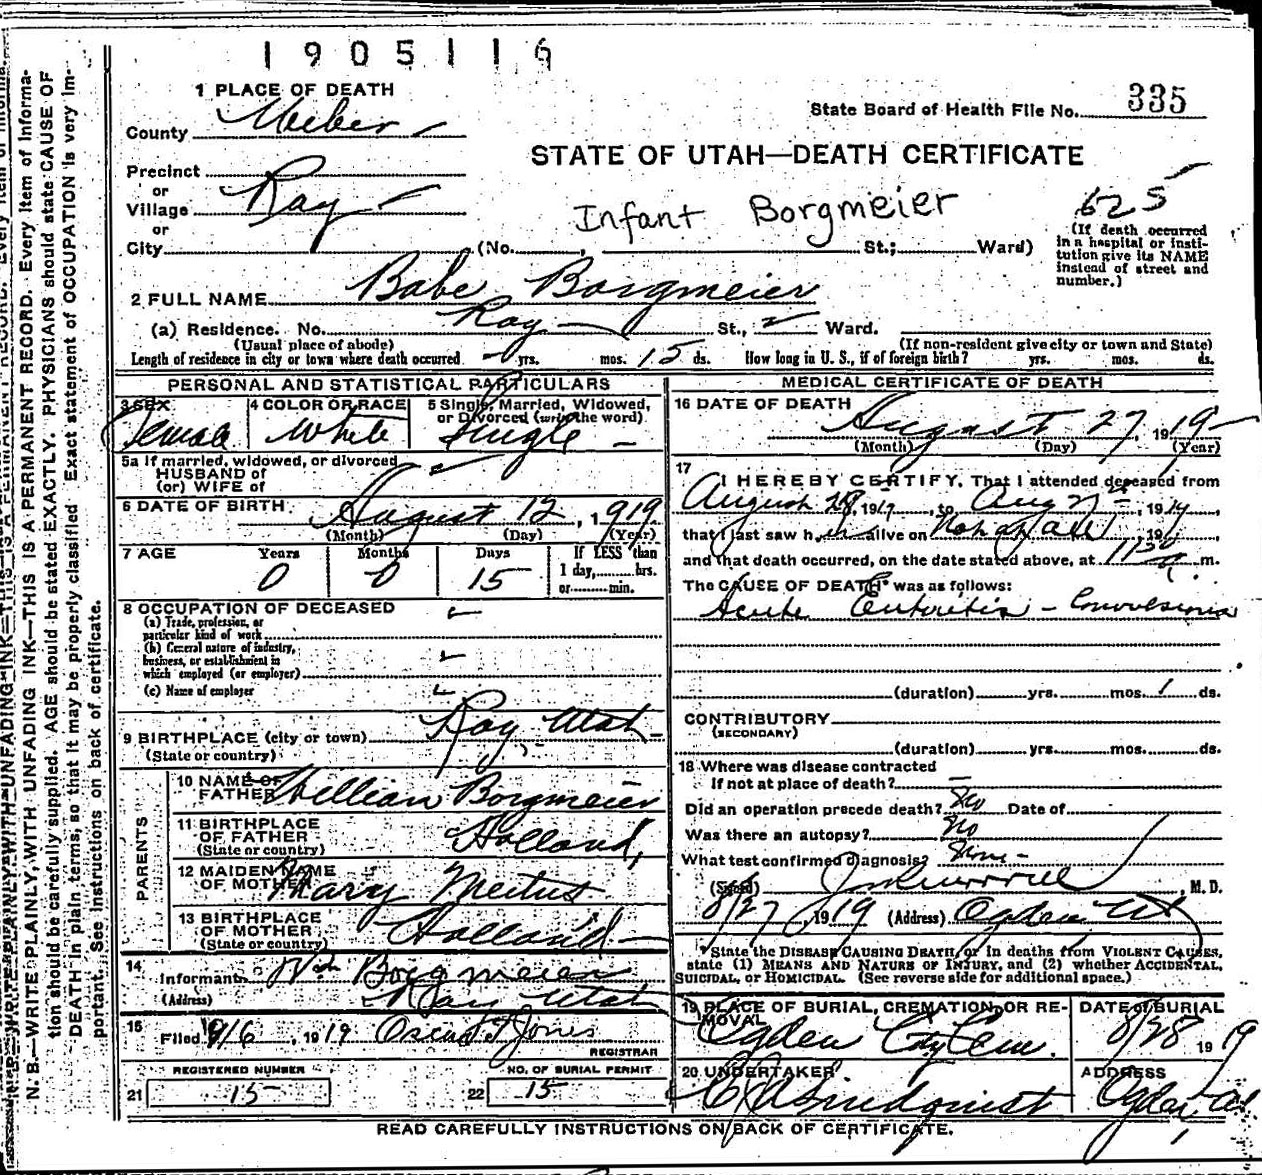 1905116
1 PLACE OF DEATH
State Board of Health File No. 335
County Weber
STATE OF UTAH—DEATH CERTIFICATE
Precinct
or
Village Roy
Infant Borgmeier
625
or
City (No. , St.; Ward)
(If death occurred in a hospital or insti-
tution give its NAME
instead of street and
number.)
2 FULL NAME Babe Borgmeier
(a) Residence. No. Roy St., Ward.
(Usual place of abode)
(If non-resident give city or town and State)
Length of residence in city or town where death occurred - yrs. mos. 15 ds. How long in U. S., if of foreign birth? yrs. mos. ds.
PERSONAL AND STATISTICAL PARTICULARS
3 SEX
Female
4 COLOR OR RACE
White
5 Single, Married, Widowed,
or Divorced (write the word)
Single -
5a If married, widowed, or divorced
HUSBAND of
(or) WIFE of
6 DATE OF BIRTH August 12, 1919
(Month) (Day) (Year)
7 AGE Years Months Days If LESS than
0 0 15 1 day, hrs.
or min.
8 OCCUPATION OF DECEASED
(a) Trade, profession, or
particular kind of work
(b) General nature of industry,
business, or establishment in
which employed (or employer)
(c) Name of employer
9 BIRTHPLACE (city or town) Roy Utah
(State or country)
PARENTS
10 NAME OF
FATHER William Borgmeier
11 BIRTHPLACE
OF FATHER Holland,
(State or country)
12 MAIDEN NAME
OF MOTHER Mary Meitus
13 BIRTHPLACE
OF MOTHER Holland
(State or country)
14
Informant Wm Borgmeier
(Address) Roy Utah
15
Filed 9/6, 1919 Oscar T Jones
REGISTRAR
REGISTERED NUMBER
21 15
NO. OF BURIAL PERMIT
22 15
MEDICAL CERTIFICATE OF DEATH
16 DATE OF DEATH
August 27, 1919
(Month) (Day) (Year)
17
I HEREBY CERTIFY, That I attended deceased from
August , 1919, to Aug 27, 1919,
that I last saw her alive on Not at all, 19 ,
and that death occurred, on the date stated above, at 11 30 a. m.
The CAUSE OF DEATH* was as follows:
Acute Enteritis - Convulsions
(duration) yrs. mos. 1 ds.
CONTRIBUTORY
(SECONDARY)
(duration) yrs. mos. ds.
18 Where was disease contracted
If not at place of death? -
Did an operation precede death? No Date of
Was there an autopsy? No
What test confirmed diagnosis? None -
(Signed) , M. D.
8/27, 1919 (Address) Ogden Ut
*State the DISEASE CAUSING DEATH, or in deaths from VIOLENT CAUSES,
state (1) MEANS AND NATURE OF INJURY, and (2) whether ACCIDENTAL,
SUICIDAL, or HOMICIDAL. (See reverse side for additional space.)
19 PLACE OF BURIAL, CREMATION, OR RE-
MOVAL
Ogden City Cem.
DATE of BURIAL
8/28 1919
20 UNDERTAKER
C A Lindquist
ADDRESS
Ogden, Ut.
READ CAREFULLY INSTRUCTIONS ON BACK OF CERTIFICATE.
N. B.—WRITE PLAINLY, WITH UNFADING INK—THIS IS A PERMANENT RECORD. Every item of informa-
tion should be carefully supplied. AGE should be stated EXACTLY. PHYSICIANS should state CAUSE OF
DEATH in plain terms, so that it may be properly classified. Exact statement of OCCUPATION is very im-
portant. See instructions on back of certificate.